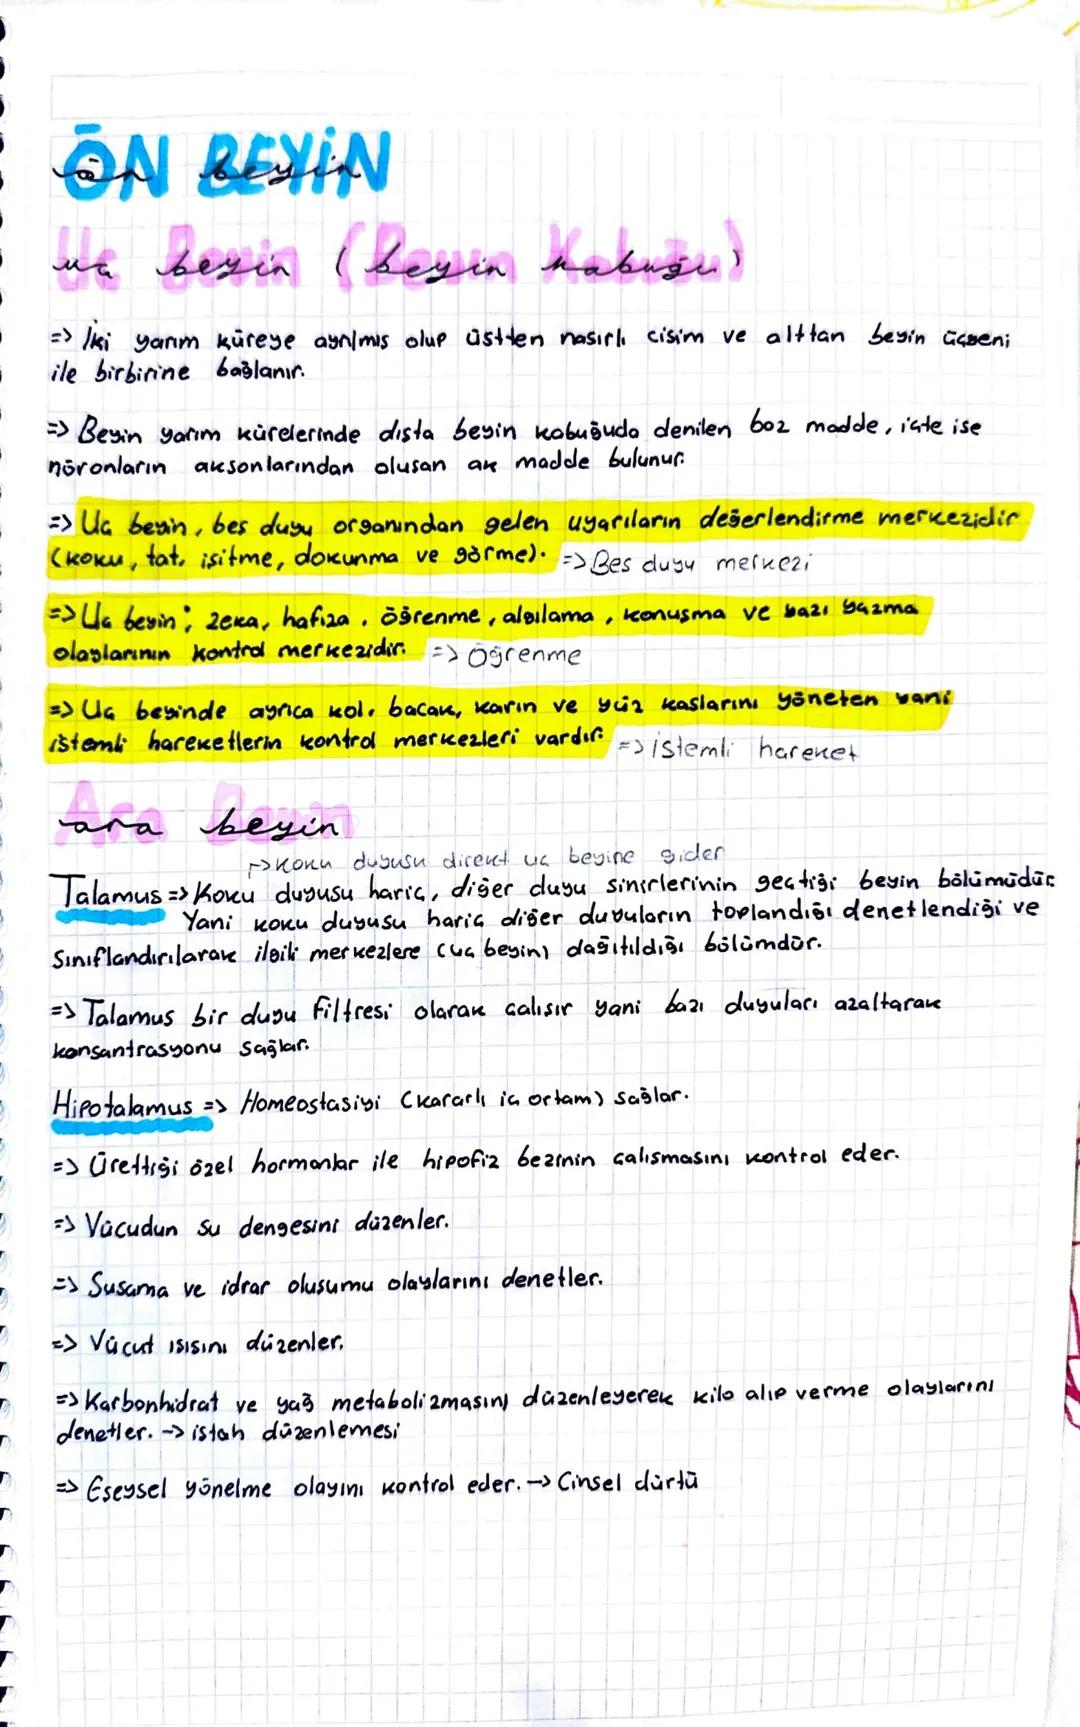 ÖN BEYİN
ön beyin
Uç Beyin (Beyin Kabuğu)
uç beyin (beyin kabuğu)
=> İki yarım küreye ayrılmış olup üstten nasırlı cisim ve alttan beyin üçgeni
ile birbirine bağlanır.
=> Beyin yarım kürelerinde dışta beyin kabuğuda denilen boz madde, içte ise
nöronların aksonlarından oluşan ak madde bulunur.
=> Uç beyin, beş duyu organından gelen uyarıların değerlendirme merkezidir
(koku, tat, işitme, dokunma ve görme). => Beş duyu merkezi
=> Uç beyin; zeka, hafıza, öğrenme, algılama, konuşma ve bazı yazma
olaylarının kontrol merkezidir. => öğrenme
=> Uç beyinde ayrıca kol, bacak, karın ve yüz kaslarını yöneten yani
istemli hareketlerin kontrol merkezleri vardır. => istemli hareket
Ara Beyin
ara beyin
-> Koku duyusu direkt uç beyine gider
Talamus => Koku duyusu hariç, diğer duyu sinirlerinin geçtiği beyin bölümüdür.
Yani koku duyusu hariç diğer duyuların toplandığı denetlendiği ve
sınıflandırılarak ilgili merkezlere (uç beyin) dağıtıldığı bölümdür.
=> Talamus bir duyu filtresi olarak çalışır yani bazı duyuları azaltarak
konsantrasyonu sağlar.
Hipotalamus => Homeostasiyi (kararlı iç ortam) sağlar.
=> Ürettiği özel hormonlar ile hipofiz bezinin çalışmasını kontrol eder.
=> Vücudun su dengesini düzenler.
=> Susama ve idrar oluşumu olaylarını denetler.
=> Vücut ısısını düzenler.
=> Karbonhidrat ve yağ metabolizmasını düzenleyerek kilo alıp verme olaylarını
denetler. -> iştah düzenlemesi
=> Eşeysel yönelme olayını kontrol eder. -> Cinsel dürtü